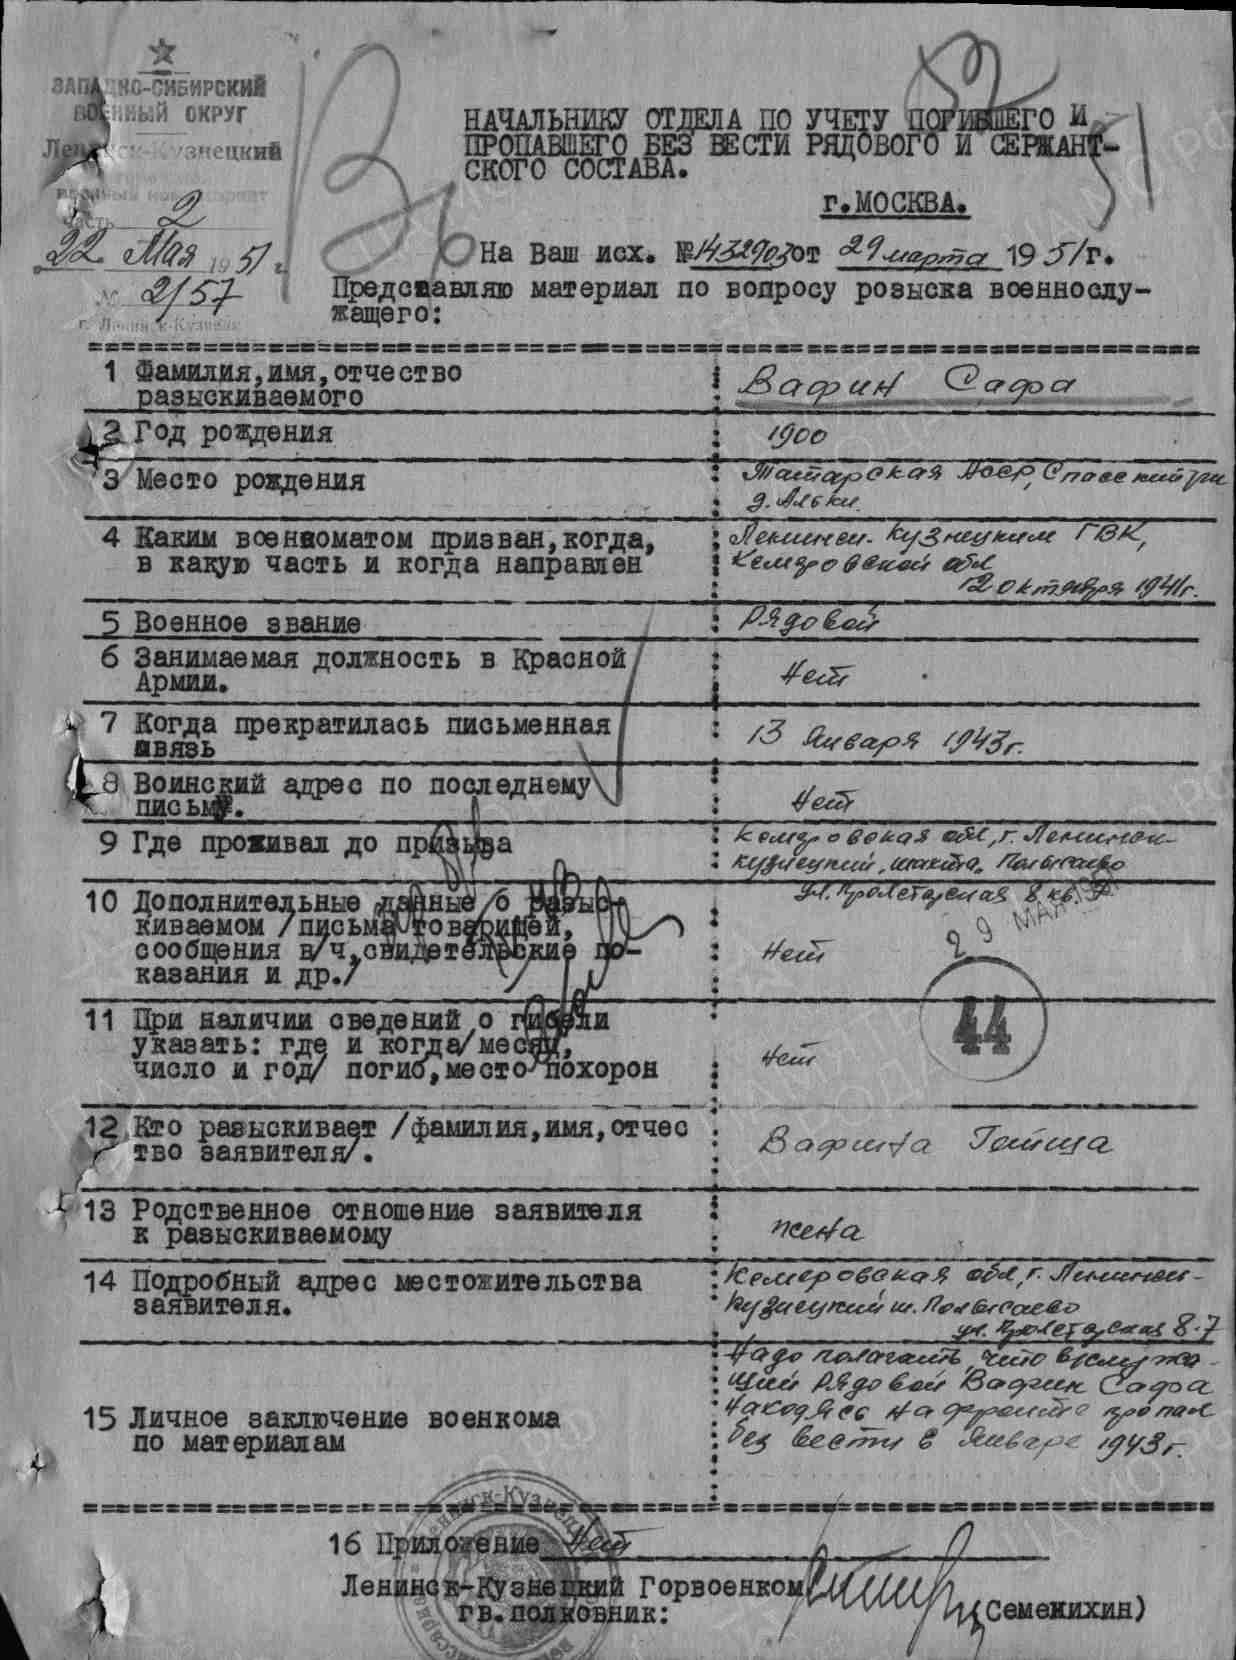 ЗАПАДНО-СИБИРСКИЙ
ВОЕННЫЙ ОКРУГ
Ленинск-Кузнецкий
часть 2
22 Мая 1951 г.
№ 2/57
г. Ленинск-Кузнецк
НАЧАЛЬНИКУ ОТДЕЛА ПО УЧЕТУ ПОГИБШЕГО И
ПРОПАВШЕГО БЕЗ ВЕСТИ РЯДОВОГО И СЕРЖАНТ-
СКОГО СОСТАВА.
г.МОСКВА.
На Ваш исх. №1432903 от 29 марта 1951г.
Представляю материал по вопросу розыска военнослу-
жащего:
1 Фамилия,имя,отчество
разыскиваемого
Вафин Сафа
2 Год рождения
1900
3 Место рождения
Татарская АССР, Спасский р-н
д. Альки.
4 Каким военкоматом призван,когда,
в какую часть и когда направлен
Ленинск-Кузнецким ГВК,
Кемеровской обл
12 октября 1941г.
5 Военное звание
Рядовой
6 Занимаемая должность в Красной
Армии.
Нет
7 Когда прекратилась письменная
связь
13 Января 1943г.
8 Воинский адрес по последнему
письму.
Нет
9 Где проживал до призыва
Кемеровская обл, г. Ленинск-
Кузнецкий, шахта Полысаево
ул. Пролетарская 8 кв. 7
10 Дополнительные данные о разыс-
киваемом /письма товарищей,
сообщения в/ч,свидетельские по-
казания и др./
Нет
29 МАЯ 1951
44
11 При наличии сведений о гибели
указать: где и когда/месяц,
число и год/ погиб,место похорон
Нет
12 Кто разыскивает /фамилия,имя,отчес
тво заявителя/.
Вафина Гайша
13 Родственное отношение заявителя
к разыскиваемому
жена
14 Подробный адрес местожительства
заявителя.
Кемеровская обл, г. Ленинск-
Кузнецкий ш. Полысаево
ул. Пролетарская 8-7
15 Личное заключение военкома
по материалам
Надо полагать, что в/служа-
щий рядовой Вафин Сафа
находясь на фронте пропал
без вести в Январе 1943г.
16 Приложение Нет
Ленинск-Кузнецкий Горвоенком
гв.полковник:
(Семенихин)